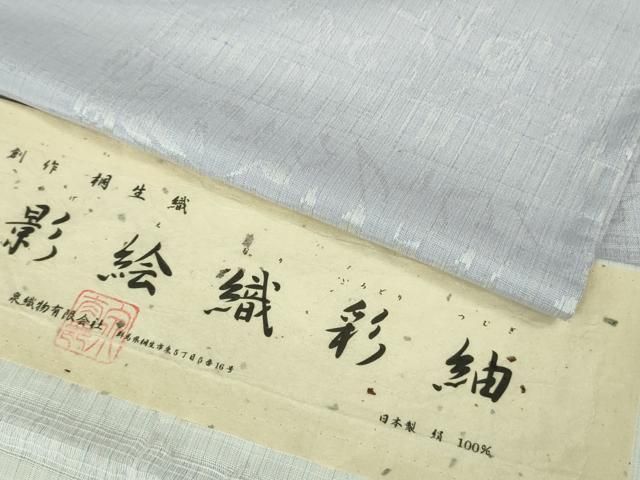 創作 桐生織
影絵織彩紬
いろどり つむぎ
泉織物有限会社
群馬県桐生市東5丁目5番16号
日本製 絹 100%